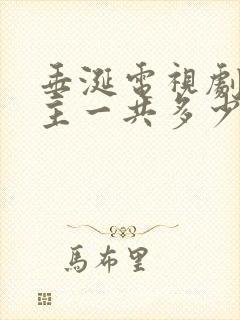 垂涎電視劇
主一共多少
馬布里